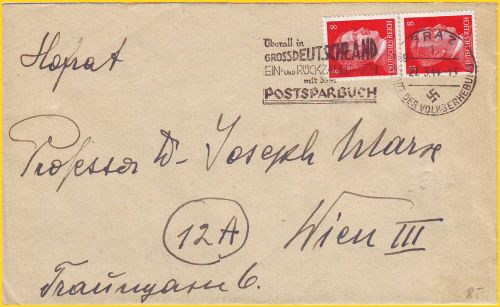 Hofrat
Überall in
GROSSDEUTSCHLAND
EIN- UND RÜCKZAHLUNGEN
mit dem
POSTSPARBUCH
8
8
DEUTSCHES REICH
DEUTSCHES REICH
GRAZ
DER VOLKSERHEBUNG
Professor Dr. Joseph Marx
12A
Wien III
Traungasse 6.
8.-